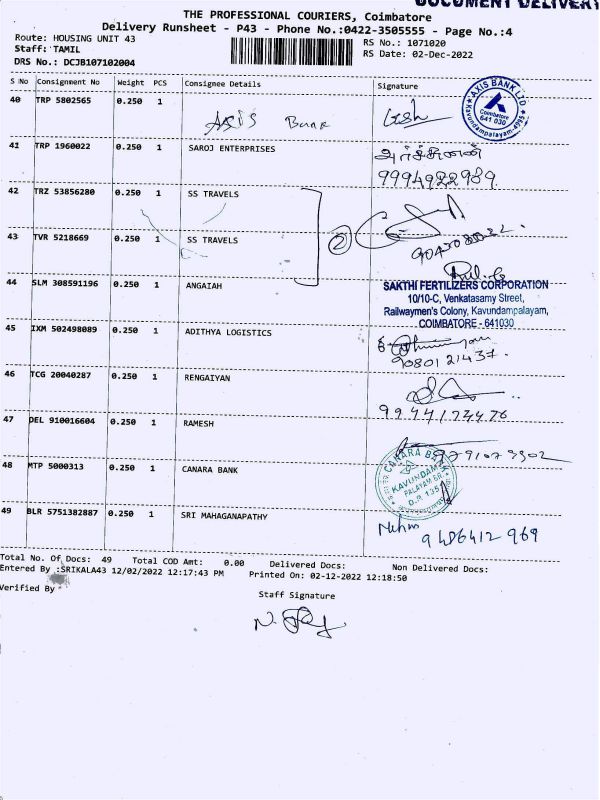 DOCUMENT DELIVERY
THE PROFESSIONAL COURIERS, Coimbatore
Delivery Runsheet - P43 - Phone No.:0422-3505555 - Page No.:4
Route: HOUSING UNIT 43
RS No.: 1071020
Staff: TAMIL
RS Date: 02-Dec-2022
DRS No.: DCJB107102004
S No Consignment No Weight PCS Consignee Details Signature
40 TRP 5802565 0.250 1 Axis Bank
AXIS BANK LTD
Coimbatore
641 030
Kavundampalayam
41 TRP 1960022 0.250 1 SAROJ ENTERPRISES
9994922989
42 TRZ 53856280 0.250 1 SS TRAVELS
2
43 TVR 5218669 0.250 1 SS TRAVELS
44 SLM 308591196 0.250 1 ANGAIAH
SAKTHI FERTILIZERS CORPORATION
10/10-C, Venkatasamy Street,
Railwaymen's Colony, Kavundampalayam,
COIMBATORE - 641030
45 IXM 502498089 0.250 1 ADITHYA LOGISTICS
9080121437.
46 TCG 20040287 0.250 1 RENGAIYAN
47 DEL 910016604 0.250 1 RAMESH
48 MTP 5000313 0.250 1 CANARA BANK
CANARA
KAVUNDAM
PALAYAM BR.
49 BLR 5751382887 0.250 1 SRI MAHAGANAPATHY
9486412969
Total No. Of Docs: 49 Total COD Amt: 0.00 Delivered Docs: Non Delivered Docs:
Entered By :SRIKALA43 12/02/2022 12:17:43 PM Printed On: 02-12-2022 12:18:50
Verified By
Staff Signature